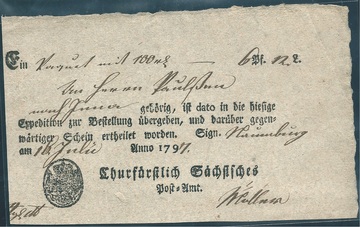 Ein Paquet mit 100 — 6 Pf. 12 L.
An Herrn Paulssen
nach Jena gehörig, ist dato in die hiesige
Expedition zur Bestellung übergeben, und darüber gegen-
wärtiger Schein ertheilet worden. Sign. Naumburg
am Julii Anno 1797.
Churfürstlich Sächsisches
Post-Amt.